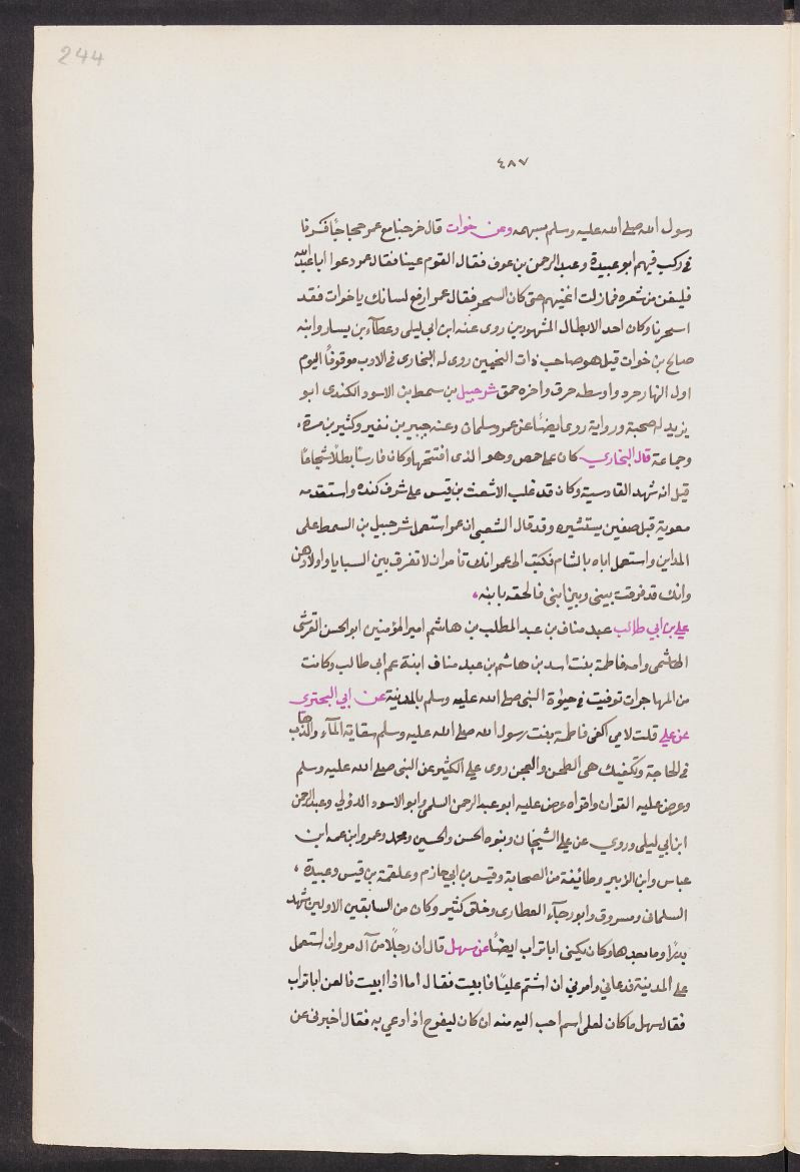 244
٤٨٧
رسول الله صلى الله عليه وسلم بسهمه وعن خوات قال خرجنا مع عمر حجاجا فسرنا
في ركب فيهم ابو عبيدة وعبد الرحمن بن عوف فقال القوم غننا فقال عمر دعوا ابا عبد الله
فليغن من شعره فما زلت اغنيهم حتى كان السحر فقال عمر ارفع لسانك يا خوات فقد
اسحرنا وكان احد الابطال المشهورين روى عنه ابن ابي ليلى وعطآء بن يسار وابنه
صالح بن خوات قيل هو صاحب ذات النحيين روى له البخارى فى الادب موقوفاً اليوم
اول النهار حرد واوسطه حرق واخره حمق شرحبيل بن سمط بن الاسود الكندى ابو
يزيد له صحبة ورواية روى ايضًا عن عمر وسلمان وعنه جبير بن نفير وكثير بن مرة،
وجماعة قال البخاري كان على حمص وهو الذى افتتحها وكان فارسًا بطلًا شجاعًا
قيل انه شهد القادسية وكان قد غلب الاشعث بن قيس على شرف كنده واستقدمه
معوية قبل صفين يستشيره وقد قال الشعبى ان عمر استعمل شرحبيل بن السمط على
المداين واستعمل اباه بالشام فكتب الى عمر انك تأمر ان لا تفرق بين السبايا واولادهن
وانك قد فرقت بيني وبين ابنى فالحقه بابنه،
علي بن ابي طالب عبد مناف بن عبد المطلب بن هاشم امير المؤمنين ابو الحسن القرشى
الهاشمى وامه فاطمة بنت اسد بن هاشم بن عبد مناف ابنة عم ابى طالب وكانت
من المهاجرات توفيت في حيٰوة النبى صلى الله عليه وسلم بالمدينة عن ابي البحترى
عن علي قلت لامي اكفى فاطمة بنت رسول الله صلى الله عليه وسلم سقاية المآء والذهاب
فى الحاجة وتكفيك هى الطحن والعجن روى على الكثير عن النبى صلى الله عليه وسلم
وعرض عليه القران واقراه عرض عليه ابو عبد الرحمن السلمى وابو الاسود الدؤلي وعبد الرحمن
ابن ابي ليلى وروي عن علي الشيخان وبنوه الحسن والحسين ومحمد وعمر وابن عمه ابن
عباس وابن الزبير وطائفة من الصحابة وقيس بن ابي حازم وعلقمة بن قيس وعبيدة،
السلمانى ومسروق وابو رجآء العطاردى وخلق كثير وكان من السابقين الاولين شهد
بدرًا وما بعدها وكان يكنى ابا تراب ايضًا عن سهل قال ان رجلًا من آل مروان استعمل
على المدينة فدعاني وامرني ان اشتم عليًا فابيت فقال اما اذا ابيت فالعن ابا تراب
فقال سهل ما كان لعلى اسم احب اليه منه ان كان ليفرح اذا دعي به فقال اخبرنى عن